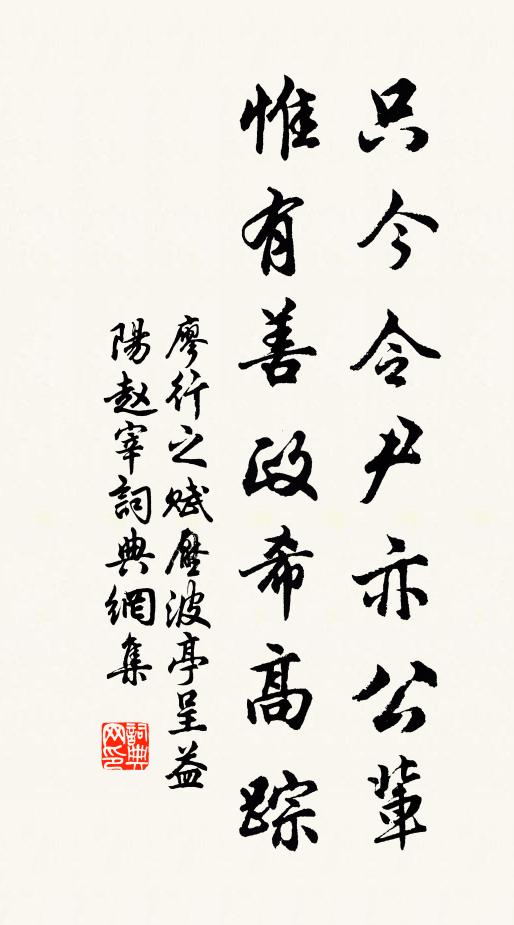 只今令尹亦公輩
惟有善政希高踪
廖行之賦壓波亭呈益
陽趙宰詞典網集
詞典
网印